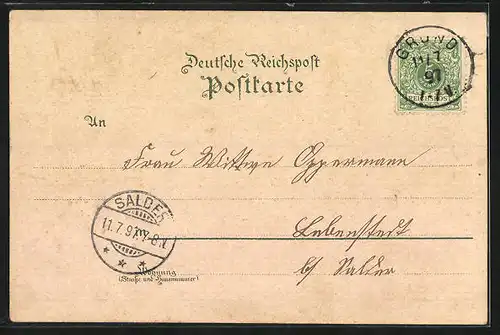 Deutsche Reichspost
Postkarte
GRUND
11 7
97
An
Frau Wittwe Oppermann
SALDER
11.7.97
in
Lebenstedt
b/ Salder
Wohnung
(Straße und Hausnummer)